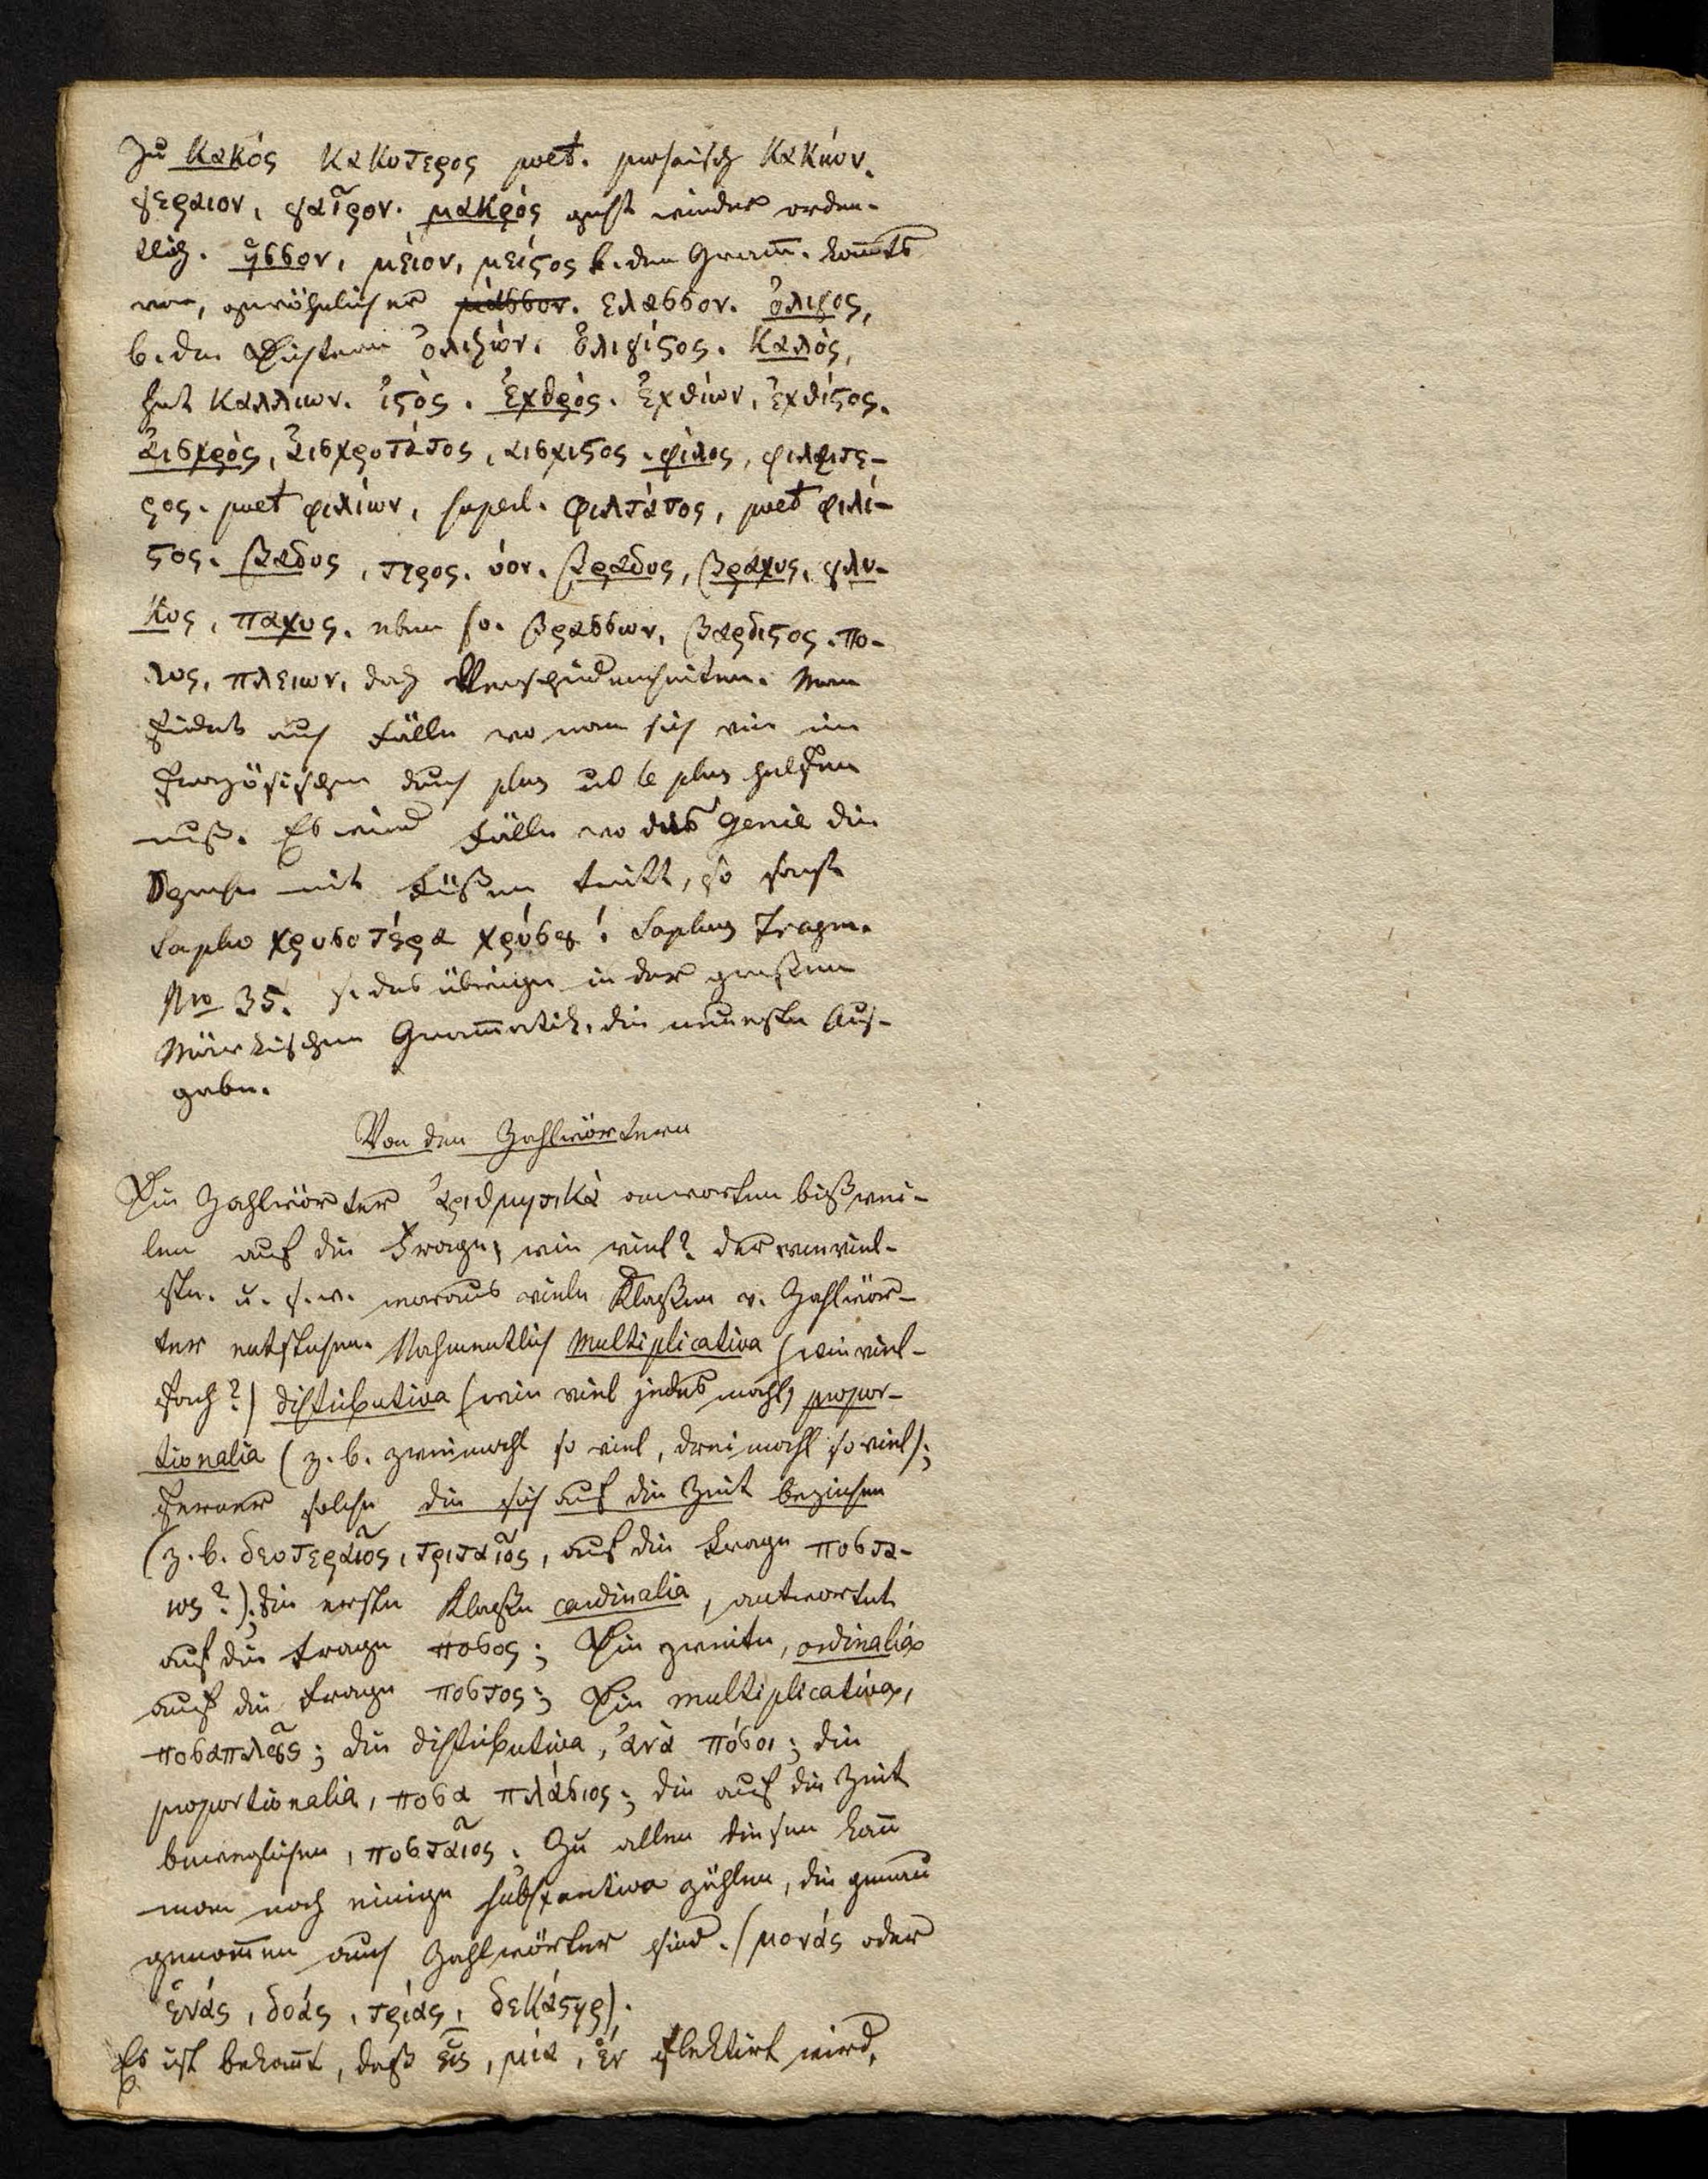 Zu κακός κακοτερος poet. prosaisch κακιον.
γεραιον, γαῖρον. μακρὸς geht wieder orden-
tlich. ἥσσον, μὲιον, μείςος b. den Gram̅. kom̅ts
vor, gewöhnlicher μάσσον. ελασσον. ὀλιγος,
b. den Dichtern ὀλιζὼν. ὀλιγίςος. καλὸς,
hat καλλιων. ιςὸς. ἐχθρὸς. ἐχθίων, ἐχθίςος.
ἀισχρὸς, ἀισχροτάτος, αισχιςος. φίλος, φιλαιτε-
ρος. poet φιλίων, superl. φιλτάτος, poet φιλί-
ςος. βαθυς, τερος. ύον. βραδυς, βραχυς, γλυ-
κυς, παχυς. eben so. βρασσων, βαρδιςος. πο-
λυς, πλειων, doch Verschiedenheiten. Man
findet auch Fälle wo man sich wie im
Französischen durch plus ud le plus helfen
muß. Es sind Fälle wo das Genie die
Sprache mit Füßen tritt, so sagt
Sapho χρυσοτέρα χρύσου! Saphus Fragm.
No 35. s. das übrige in der großen
Märkischen Gram̅atik, die neueste Aus-
gabe.
Von den Zahlwörtern
Die Zahlwörter ἀριθμητικὰ anworten bißwei-
len auf die Frage, wie viel? der wieviel-
ste. u. s. w. woraus viele Klaßen v. Zahlwör-
ter entstehen. Nahmentlich Multiplicativa (wie viel-
fach?) distributiva (wie viel jedes mahl) propor-
tionalia (z. b. zweimahl so viel, dreimahl so viel);
ferner solche die sich auf die Zeit beziehen
(z. b. δευτεραῖος, τριταῖος, auf die Frage ποστα-
ιος?); die erste Klaße cardinalia, antwortet
auf die Frage ποσος; Die zweite, ordinalia
auf die Frage ποστος; Die multiplicativa,
ποσαπλοῦς; die distributiva, ἀνὰ πόσοι; die
proportionalia, ποσα πλάσιος; die auf die Zeit
bezüglichen, ποσταῖος. Zu allen diesen kan̅
man noch einige substantiva zählen, die genau
genom̅en auch Zahlwörter sind. (μονάς oder
ἑνάς, δυάς, τριάς, δεκάςης).
Es ist bekan̅t, daß εἷς, μία, ἕν flektirt wird,